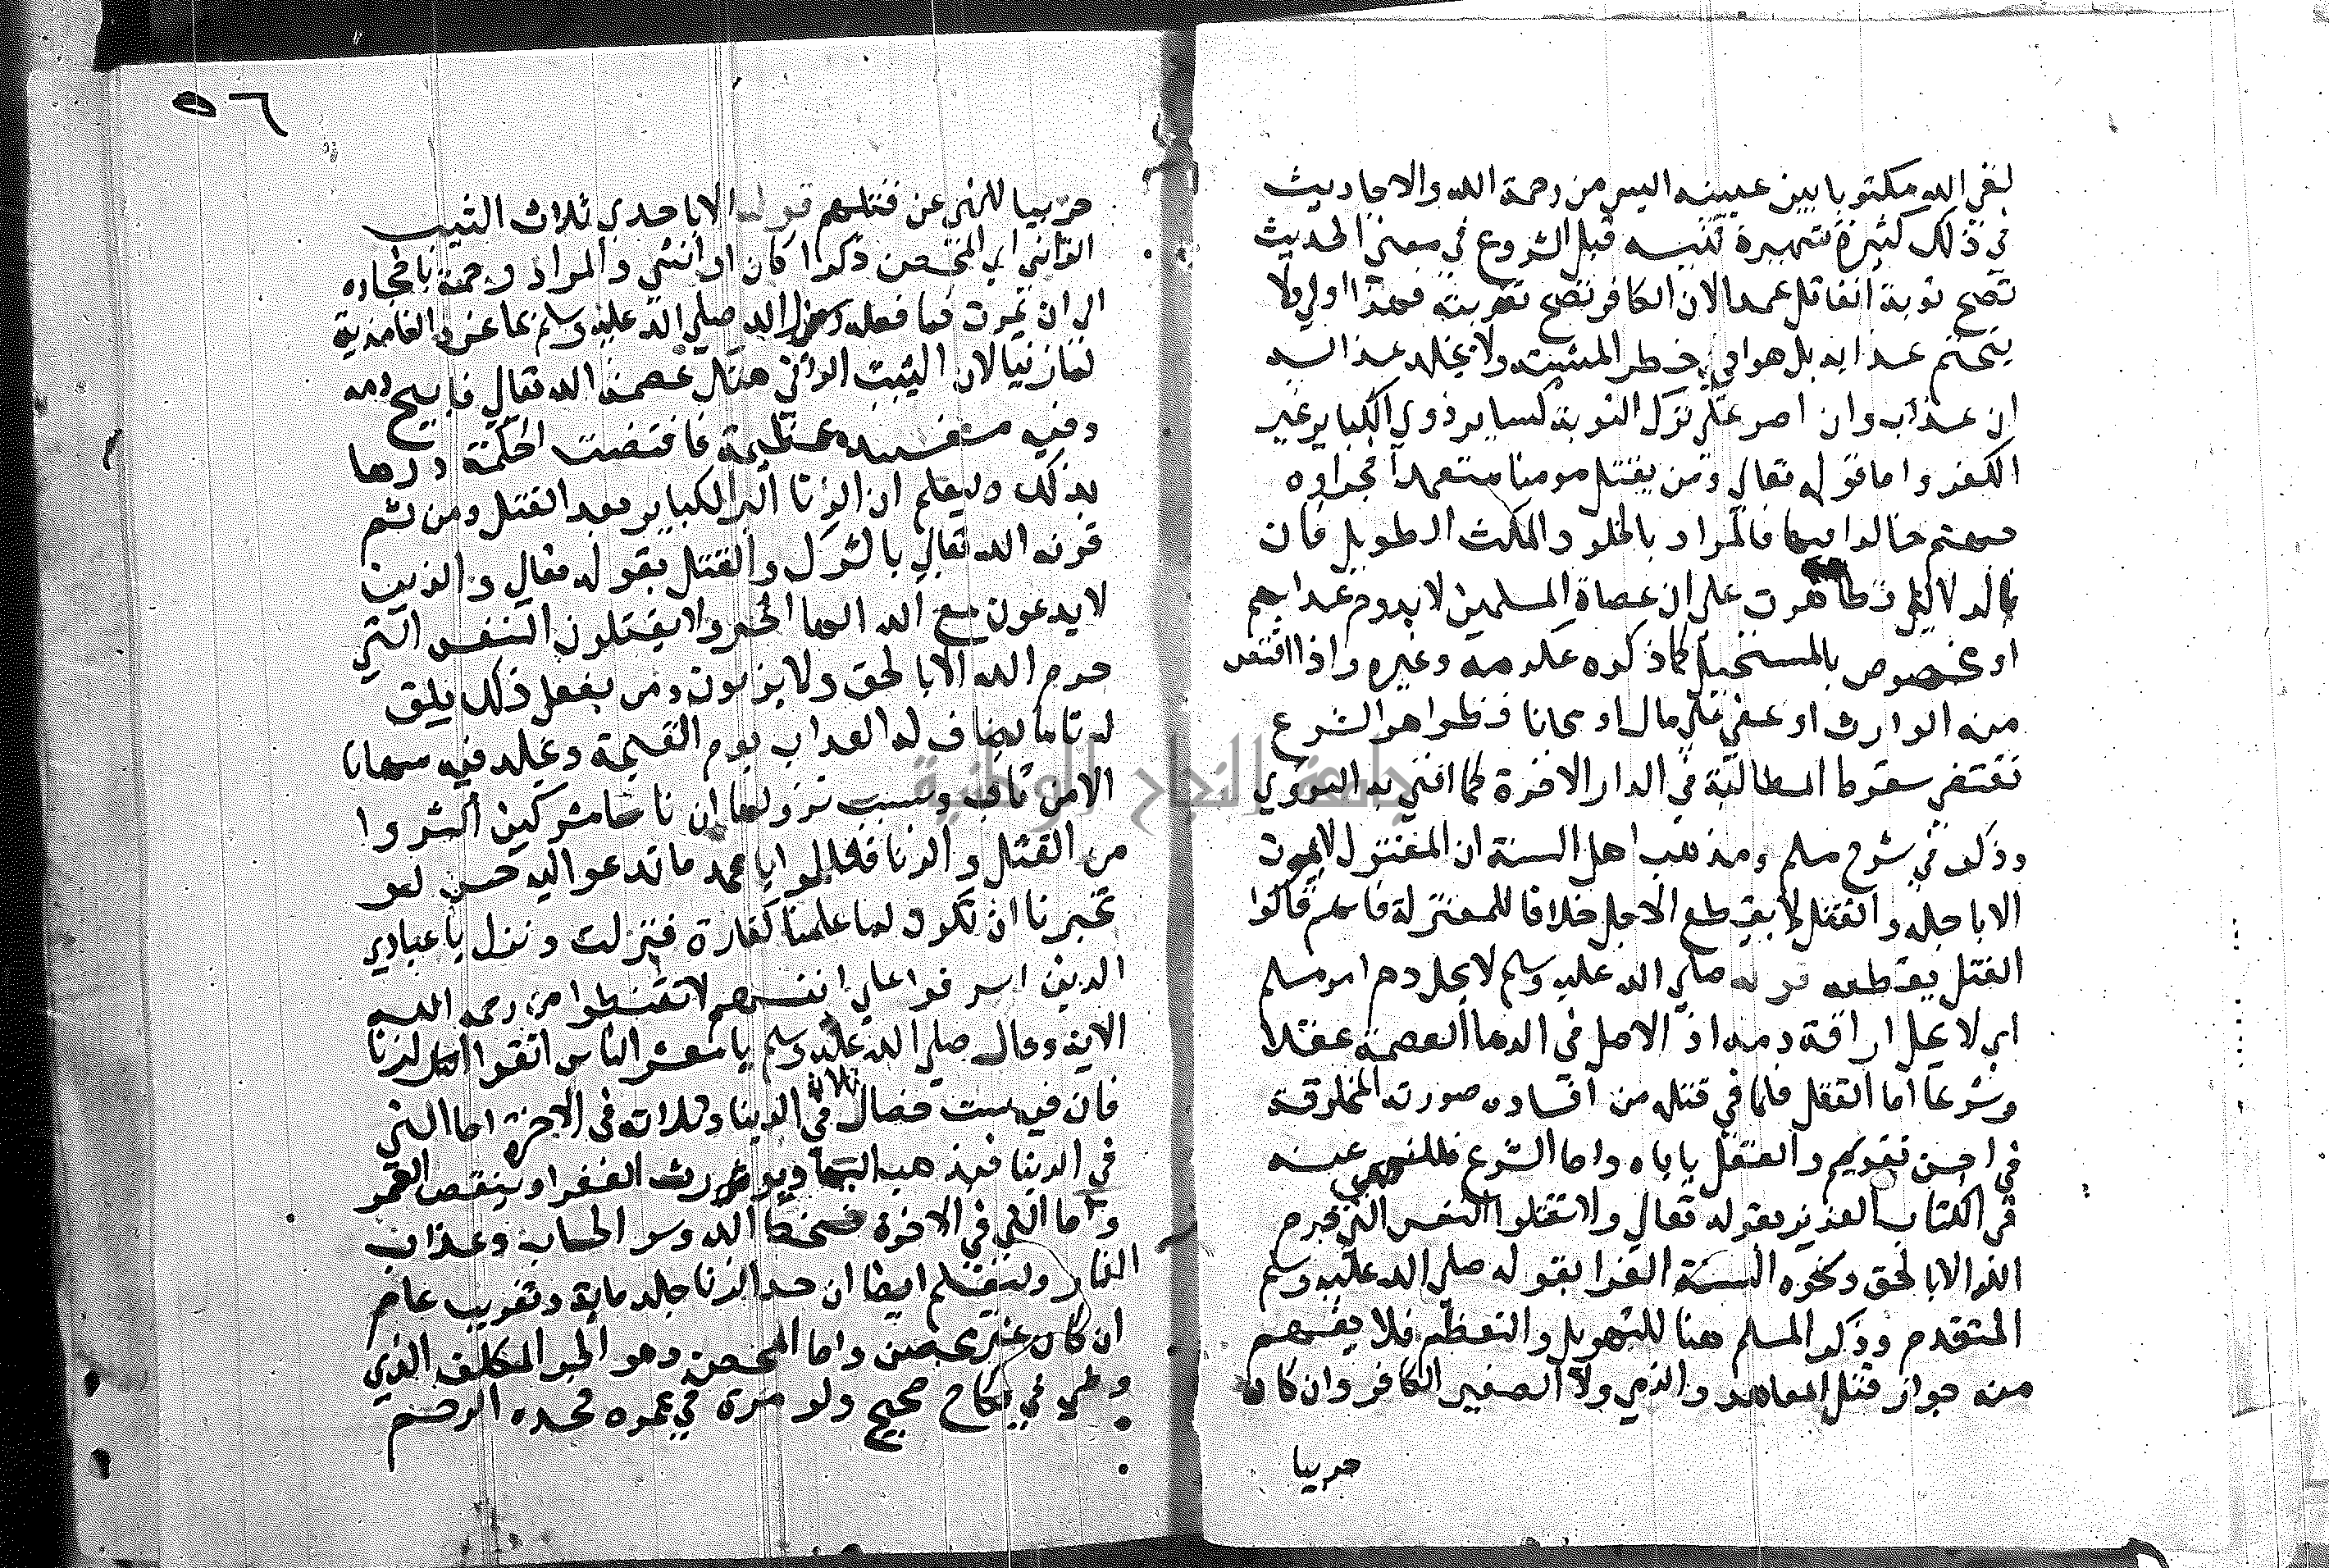 لقي الله مكتوبا بين عينيه اليس من رحمة الله والاحاديث
في ذلك كثيرة شهيرة تنبيه قبل الشروع في معني الحديث
تصح توبة القاتل عمدا لان الكافر تصح توبته فهذا اولي ولا
يتحتم عذابه بل هو في خطر المشيئة ولا يخلد عذابه
ان عذب وان اصر علي ترك التوبة كساير ذوي الكباير غير
الكفر واما قوله تعالي ومن يقتل مومنا متعمدا فجزاوه
جهنم خالدا فيها فالمراد بالخلود المكث الطويل فان
الدلايل تظاهرت علي ان عصاة المسلمين لا يدوم عذابهم
او مخصوص بالمستحيل كما ذكره عكرمه وغيره واذا اقتص
منه الوارث او عفي علي مال او مجانا فظواهر الشرع
تقتضي سقوط المطالبة في الدار الاخرة كما افتي به النووي
وذكر في شرح مسلم ومذهب اهل السنة ان المقتول لا يموت
الا باجله والقتل لا يقطع الاجل خلافا للمعتزلة فانهم قالوا
القتل يقطعه قوله صلي الله عليه وسلم لا يحل دم امر مسلم
اي لا يحل اراقة دمه اذ الاصل في الدما العصمة عقلا
وشرعا اما العقل فلما في قتله من افساد صورته المخلوقة
في احسن تقويم والعقل ياباه واما الشرع فللنهي عنه
في الكتاب العزيز بقوله تعالي ولا تقتلوا النفس التي حرم
الله الا بالحق ونحوه السنة الغرا بقوله صلي الله عليه وسلم
المتقدم وذكر المسلم هنا للتهويل والتعظيم فلا يفهم
منه جواز قتل المعاهد والذمي ولا الصغير الكافر وان كان
حربيا
٥٦
حربيا للنهي عن قتلهم قوله الا باحدي ثلاث الثيب
الزاني اي المحصن ذكرا كان او انثي والمراد رجمه بالحجارة
الي ان يموت كما فعله رسول الله صلي الله عليه وسلم بماعز والغامدية
لما زنيا لان الثيب الزاني هتك عصمة الله تعالي فابيح دمه
وفيه مفسدة عظيمة فاقتضت الحكمة درها
بذلك وليعلم ان الزنا اكبر الكباير بعد القتل ومن ثم
قرنه الله تعالي بالشرك والقتل بقوله تعالي والذين
لا يدعون مع الله الها اخر ولا يقتلون النفس التي
حرم الله الا بالحق ولا يزنون ومن يفعل ذلك يلق
اثاما يضاعف له العذاب يوم القيمة ويخلد فيه مهانا
الا من تاب وسبب نزولها ان ناسا مشركين اكثروا
من القتل والزنا فقالوا يا محمد ما تدعو اليه حسن لو
تخبرنا ان تكون لما عملنا كفارة فنزلت ونزل يا عبادي
الذين اسرفوا علي انفسهم لا تقنطوا من رحمة الله
الاية وقال صلي الله عليه وسلم يا معشر الناس اتقوا الزنا
فان فيه ست خصال ثلاثة في الدنيا وثلاثة في الاخرة اما التي
في الدنيا فيذهب البها ويورث الفقر وينقص العمر
واما التي في الاخرة فسخط الله وسو الحساب وعذاب
النار وليعلم ايضا ان حد الزنا جلد ماية وتغريب عام
ان كان غير محصن واما المحصن وهو الحر المكلف الذي
وطي في نكاح صحيح ولو مرة في عمره فحده الرجم
جامعة النجاح الوطنية